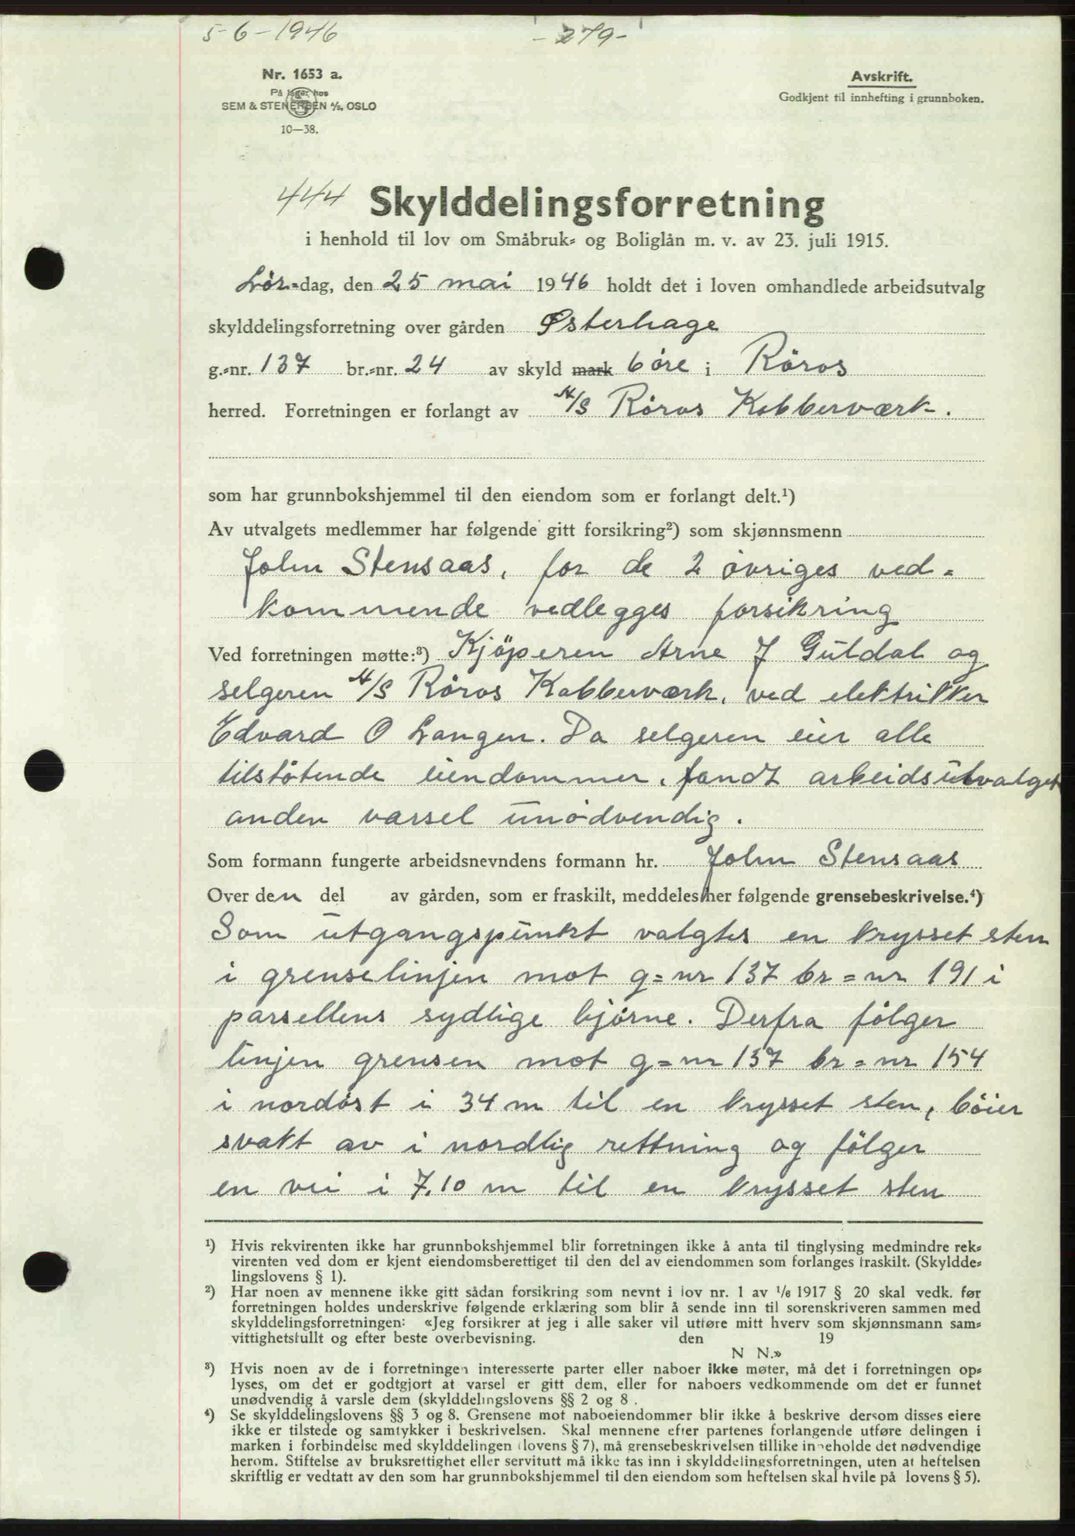 5-6-1946 -279-
Nr. 1653 a.
På lager hos
SEM & STENERSEN A/S, OSLO
10—38.
Avskrift.
Godkjent til innhefting i grunnboken.
444 Skylddelingsforretning
i henhold til lov om Småbruk- og Boliglån m. v. av 23. juli 1915.
Lör-dag, den 25 mai 1946 holdt det i loven omhandlede arbeidsutvalg
skylddelingsforretning over gården Østerhage
g.-nr. 137 br.-nr. 24 av skyld mark 6 öre i Röros
herred. Forretningen er forlangt av A/S Röros Kobberværk.
som har grunnbokshjemmel til den eiendom som er forlangt delt.¹)
Av utvalgets medlemmer har følgende gitt forsikring²) som skjønnsmenn
John Stensaas, for de 2 övriges ved-
kommende vedlegges forsikring
Ved forretningen møtte:³) Kjöperen Arne J Guldal og
selgeren A/S Röros Kobberværk, ved elektriker
Edvard O Langen. Da selgeren eier alle
tilstötende eiendommer, fandt arbeidsutvalget
anden varsel unödvendig.
Som formann fungerte arbeidsnevndens formann hr. John Stensaas
Over den del av gården, som er fraskilt, meddeles her følgende grensebeskrivelse.⁴)
Som utgangspunkt valgtes en krysset sten
i grenselinjen mot g=nr 137 br=nr 191 i
parsellens sydlige hjörne. Derfra fölger
linjen grensen mot g=nr 137 br=nr 154
i nordöst i 34 m til en krysset sten, böier
svakt av i nordlig rettning og fölger
en vei i 7,10 m til en krysset sten
¹) Hvis rekvirenten ikke har grunnbokshjemmel blir forretningen ikke å anta til tinglysing medmindre rek-
virenten ved dom er kjent eiendomsberettiget til den del av eiendommen som forlanges fraskilt. (Skyldde-
lingslovens § 1).
²) Har noen av mennene ikke gitt sådan forsikring som nevnt i lov nr. 1 av ¹/₆ 1917 § 20 skal vedk. før
forretningen holdes underskrive følgende erklæring som blir å sende inn til sorenskriveren sammen med
skylddelingsforretningen: «Jeg forsikrer at jeg i alle saker vil utføre mitt hverv som skjønnsmann sam-
vittighetsfullt og efter beste overbevisning. den 19
N N.»
³) Hvis noen av de i forretningen interesserte parter eller naboer ikke møter, må det i forretningen op-
lyses, om det er godtgjort at varsel er gitt dem, eller for naboers vedkommende om det er funnet
unødvendig å varsle dem (skylddelingslovens §§ 2 og 8 .
⁴) Se skylddelingslovens §§ 3 og 8. Grensene mot naboeiendommer blir ikke å beskrive dersom disses eiere
ikke er tilstede og samtykker i beskrivelsen. Skal mennene efter partenes forlangende utføre delingen i
marken i forbindelse med skylddelingen (lovens § 7), må grensebeskrivelsen tillike inneholde det nødvendige
herom. Stiftelse av bruksrettighet eller servitutt må ikke tas inn i skylddelingsforretningen, uten at heftelsen
skriftlig er vedtatt av den som har grunnbokshjemmel til den eiendom som heftelsen skal hvile på lovens § 5).